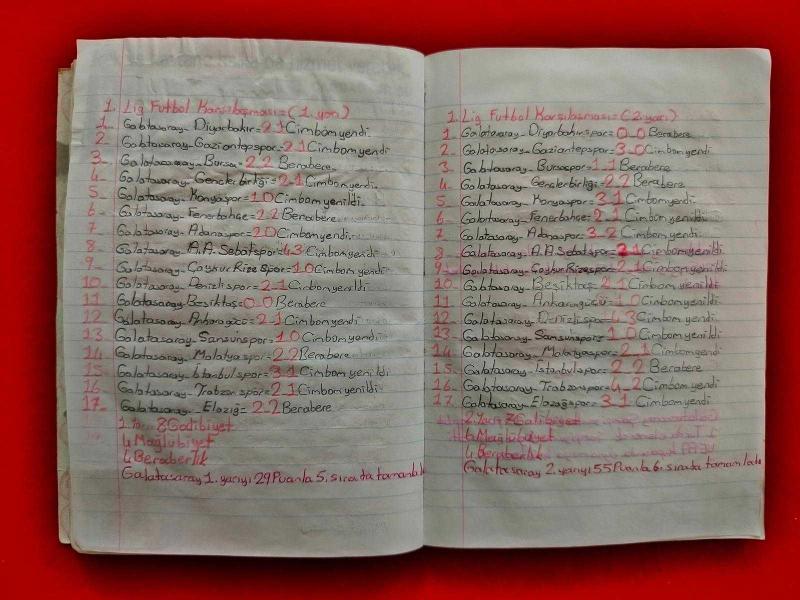 1. Lig Futbol Karşılaşması=(1.yarı)
1_ Galatasaray_Diyarbakır=2_1 Cimbom yendi.
2_ Galatasaray_Gaziantepspor=2_1 Cimbom yendi
3_ Galatasaray_Bursa=2_2 Berabere
4_ Galatasaray_Gençlerbirliği=2_1 Cimbom yendi.
5_ Galatasaray_Konyaspor=1_0 Cimbom yenildi.
6_ Galatasaray_Fenerbahçe=2_2 Berabere
7_ Galatasaray_Adanaspor=2_0 Cimbom yendi.
8_ Galatasaray_A.A.Sebatspor=4_3 Cimbom yendi
9_ Galatasaray_Çaykur Rizespor=1_0 Cimbom yendi
10_ Galatasaray_Denizlispor=2_1 Cimbom yenildi
11_ Galatasaray_Beşiktaş=0_0 Berabere
12_ Galatasaray_Ankaragücü=2_1 Cimbom yendi
13_ Galatasaray_Samsunspor=1_0 Cimbom yenildi
14_ Galatasaray_Malatyaspor=2_2 Berabere
15_ Galatasaray_İstanbulspor=3_1 Cimbom yendi
16_ Galatasaray_Trabzonspor=2_1 Cimbom yenildi
17_ Galatasaray_Elazığ=2_2 Berabere
8 Galibiyet
4 Mağlubiyet
4 Beraberlik
Galatasaray 1. yarıyı 29 Puanla 5. sırada
1. Lig Futbol Karşılaşması=(2.yarı)
1_ Galatasaray_Diyarbakırspor=0_0 Berabere
2_ Galatasaray_Gaziantepspor=3_0 Cimbom yendi
3_ Galatasaray_Bursaspor=1_1 Berabere
4_ Galatasaray_Gençlerbirliği=2_2 Berabere
5_ Galatasaray_Konyaspor=3_1 Cimbom yendi
6_ Galatasaray_Fenerbahçe=2_1 Cimbom yenildi
7_ Galatasaray_Adanaspor=3_2 Cimbom yendi
8_ Galatasaray_A.A.Sebatspor=2_1 Cimbom yenildi
9_ Galatasaray_Çaykur Rizespor=2_1 Cimbom yenildi
10_ Galatasaray_Beşiktaş=2_1 Cimbom yenildi
11_ Galatasaray_Ankaragücü=1_0 Cimbom yendi
12_ Galatasaray_Denizlispor=4_3 Cimbom yendi
13_ Galatasaray_Samsunspor=1_0 Cimbom yenildi
14_ Galatasaray_Malatyaspor=2_1 Cimbom yendi
15_ Galatasaray_İstanbulspor=2_2 Berabere
16_ Galatasaray_Trabzonspor=4_2 Cimbom yendi
17_ Galatasaray_Elazığspor=3_1 Cimbom yendi
2. Yarı 7 Galibiyet
6 Mağlubiyet
4 Beraberlik
Galatasaray 2. yarıyı 55 Puanla 6. sırada tamamladı